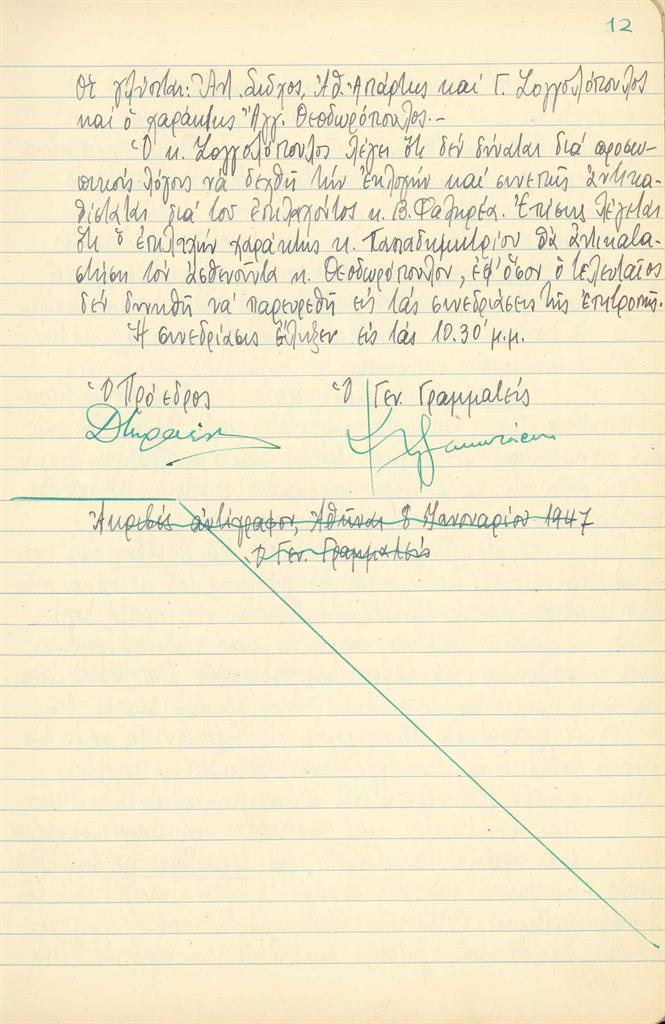 12
Οἱ γλύπται: Ἀντ. Σῶχος, Ἀθ. Ἀπάρτης καί Γ. Ζογγολόπουλος
καί ὁ χαράκτης Ἄγγ. Θεοδωρόπουλος.-
Ὁ κ. Ζογγολόπουλος λέγει ὅτι δέν δύναται διά προσω-
πικούς λόγους νά δεχθῇ τήν ἐκλογήν καί συνεπῶς ἀντικα-
θίσταται διά τοῦ ἐπιλαχόντος κ. Β. Φαληρέα. Ἐπίσης λέγεται
ὅτι ὁ ἐπιλαχών χαράκτης κ. Παπαδημητρίου θά ἀντικατα-
στήσῃ τόν ἀσθενοῦντα κ. Θεοδωρόπουλον, ἐφ' ὅσον ὁ τελευταῖος
δέν δυνηθῇ νά παρευρεθῇ εἰς τάς συνεδριάσεις τῆς Ἐπιτροπῆς.
Ἡ συνεδρίασις ἔληξεν εἰς τάς 10.30' μ.μ.
Ὁ Πρόεδρος Ὁ Γεν. Γραμματεύς
Ἀκριβές ἀντίγραφον, Ἀθῆναι 8 Ἰανουαρίου 1947
Ὁ Γεν. Γραμματεύς